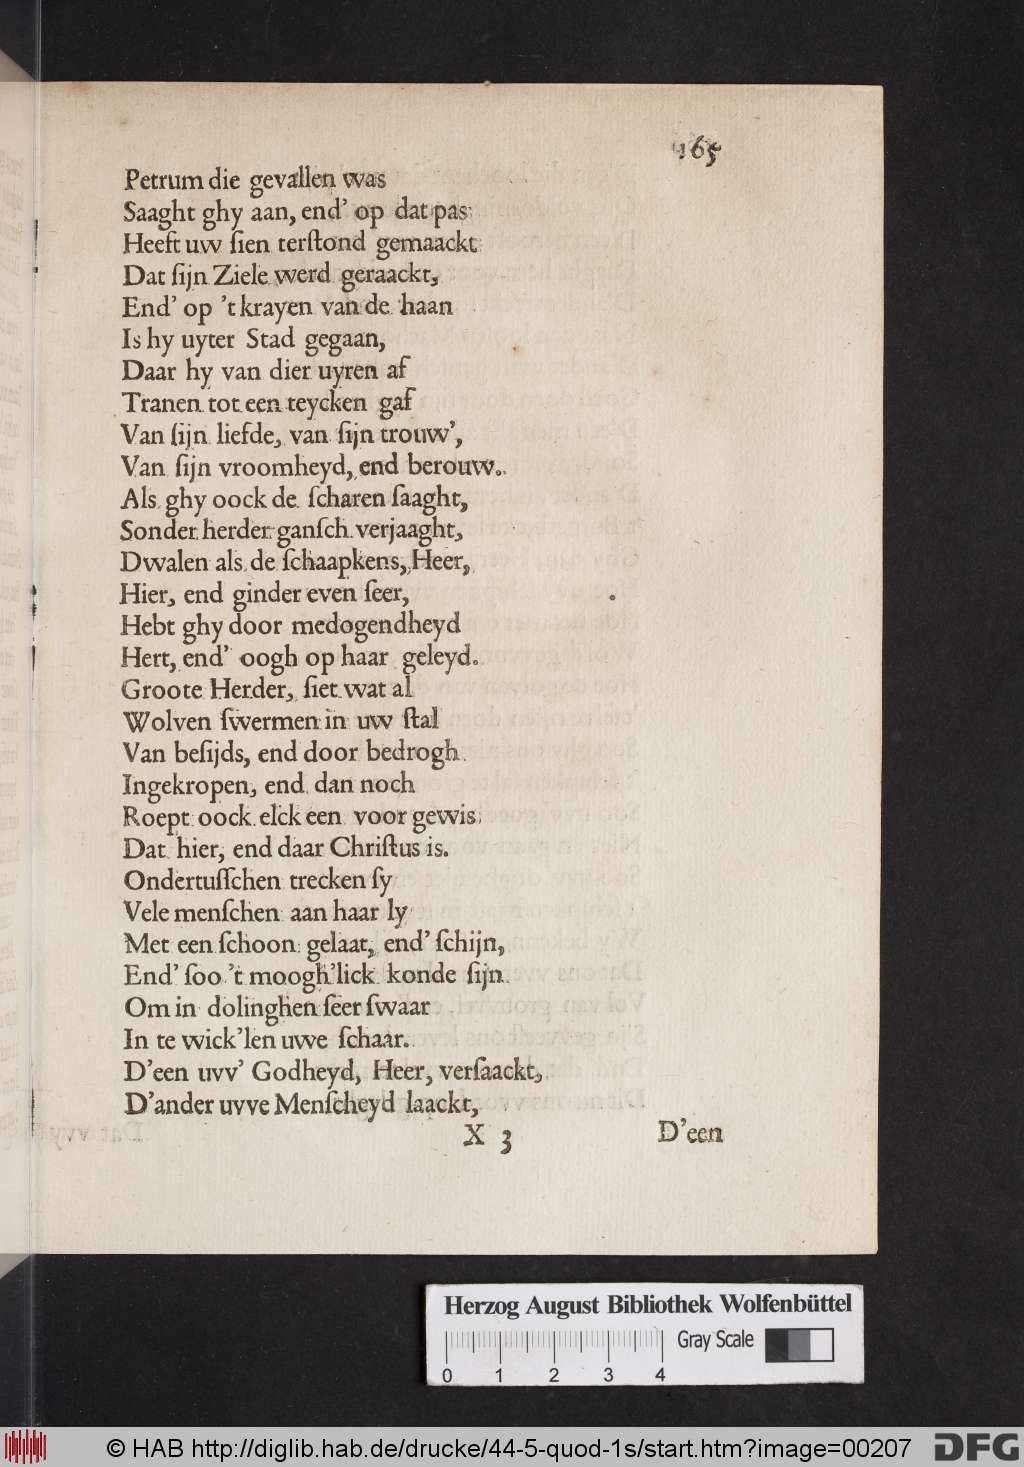 165
Petrum die gevallen was
Saaght ghy aan, end' op dat pas
Heeft uw ſien terſtond gemaackt
Dat ſijn Ziele werd geraackt,
End' op 't krayen van de haan
Is hy uyter Stad gegaan,
Daar hy van dier uyren af
Tranen tot een teycken gaf
Van ſijn liefde, van ſijn trouw',
Van ſijn vroomheyd, end berouw.
Als ghy oock de ſcharen ſaaght,
Sonder herder ganſch verjaaght,
Dwalen als de ſchaapkens, Heer,
Hier, end ginder even ſeer,
Hebt ghy door medogendheyd
Hert, end' oogh op haar geleyd.
Groote Herder, ſiet wat al
Wolven ſwermen in uw ſtal
Van beſijds, end door bedrogh
Ingekropen, end dan noch
Roept oock elck een voor gewis
Dat hier, end daar Chriſtus is.
Ondertuſſchen trecken ſy
Vele menſchen aan haar ly
Met een ſchoon gelaat, end' ſchijn,
End' ſoo 't moogh'lick konde ſijn
Om in dolinghen ſeer ſwaar
In te wick'len uwe ſchaar.
D'een uvv' Godheyd, Heer, verſaackt,
D'ander uvve Menſcheyd laackt,
X 3 D'een
Herzog August Bibliothek Wolfenbüttel
Gray Scale
0 1 2 3 4
© HAB http://diglib.hab.de/drucke/44-5-quod-1s/start.htm?image=00207
DFG